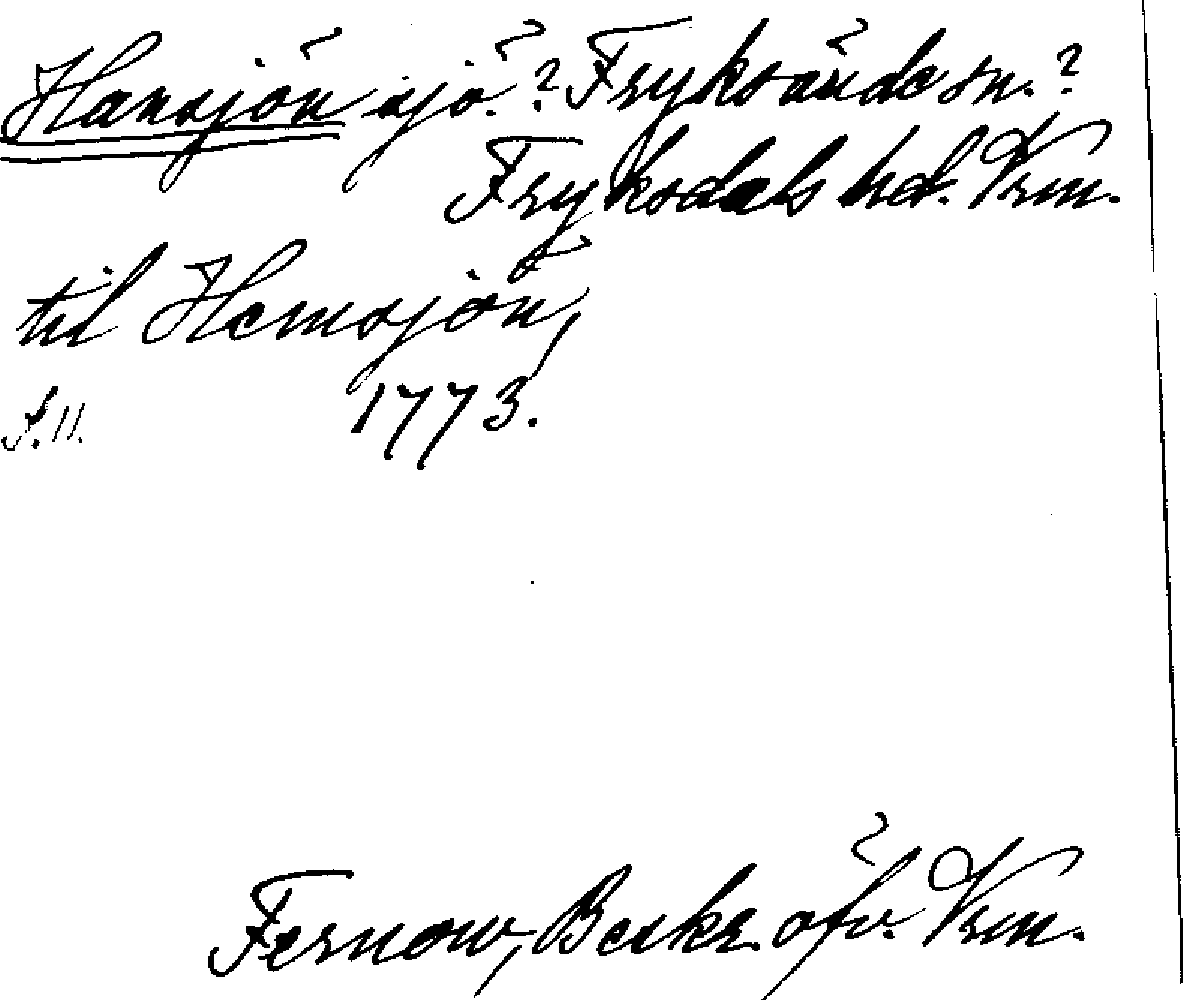 Hansjön sjö.? Fryksände sn.?
Fryksdals hd. Vrm.
til Hemsjön,
S. 11. 1773.
Fernow, Beskr. öfv. Vrm.